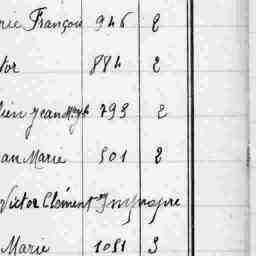 rie François 946 2
tor 884 2
lien Jean 793 2
an Marie 501 2
Victor Clément Impropre
Marie 1081 3